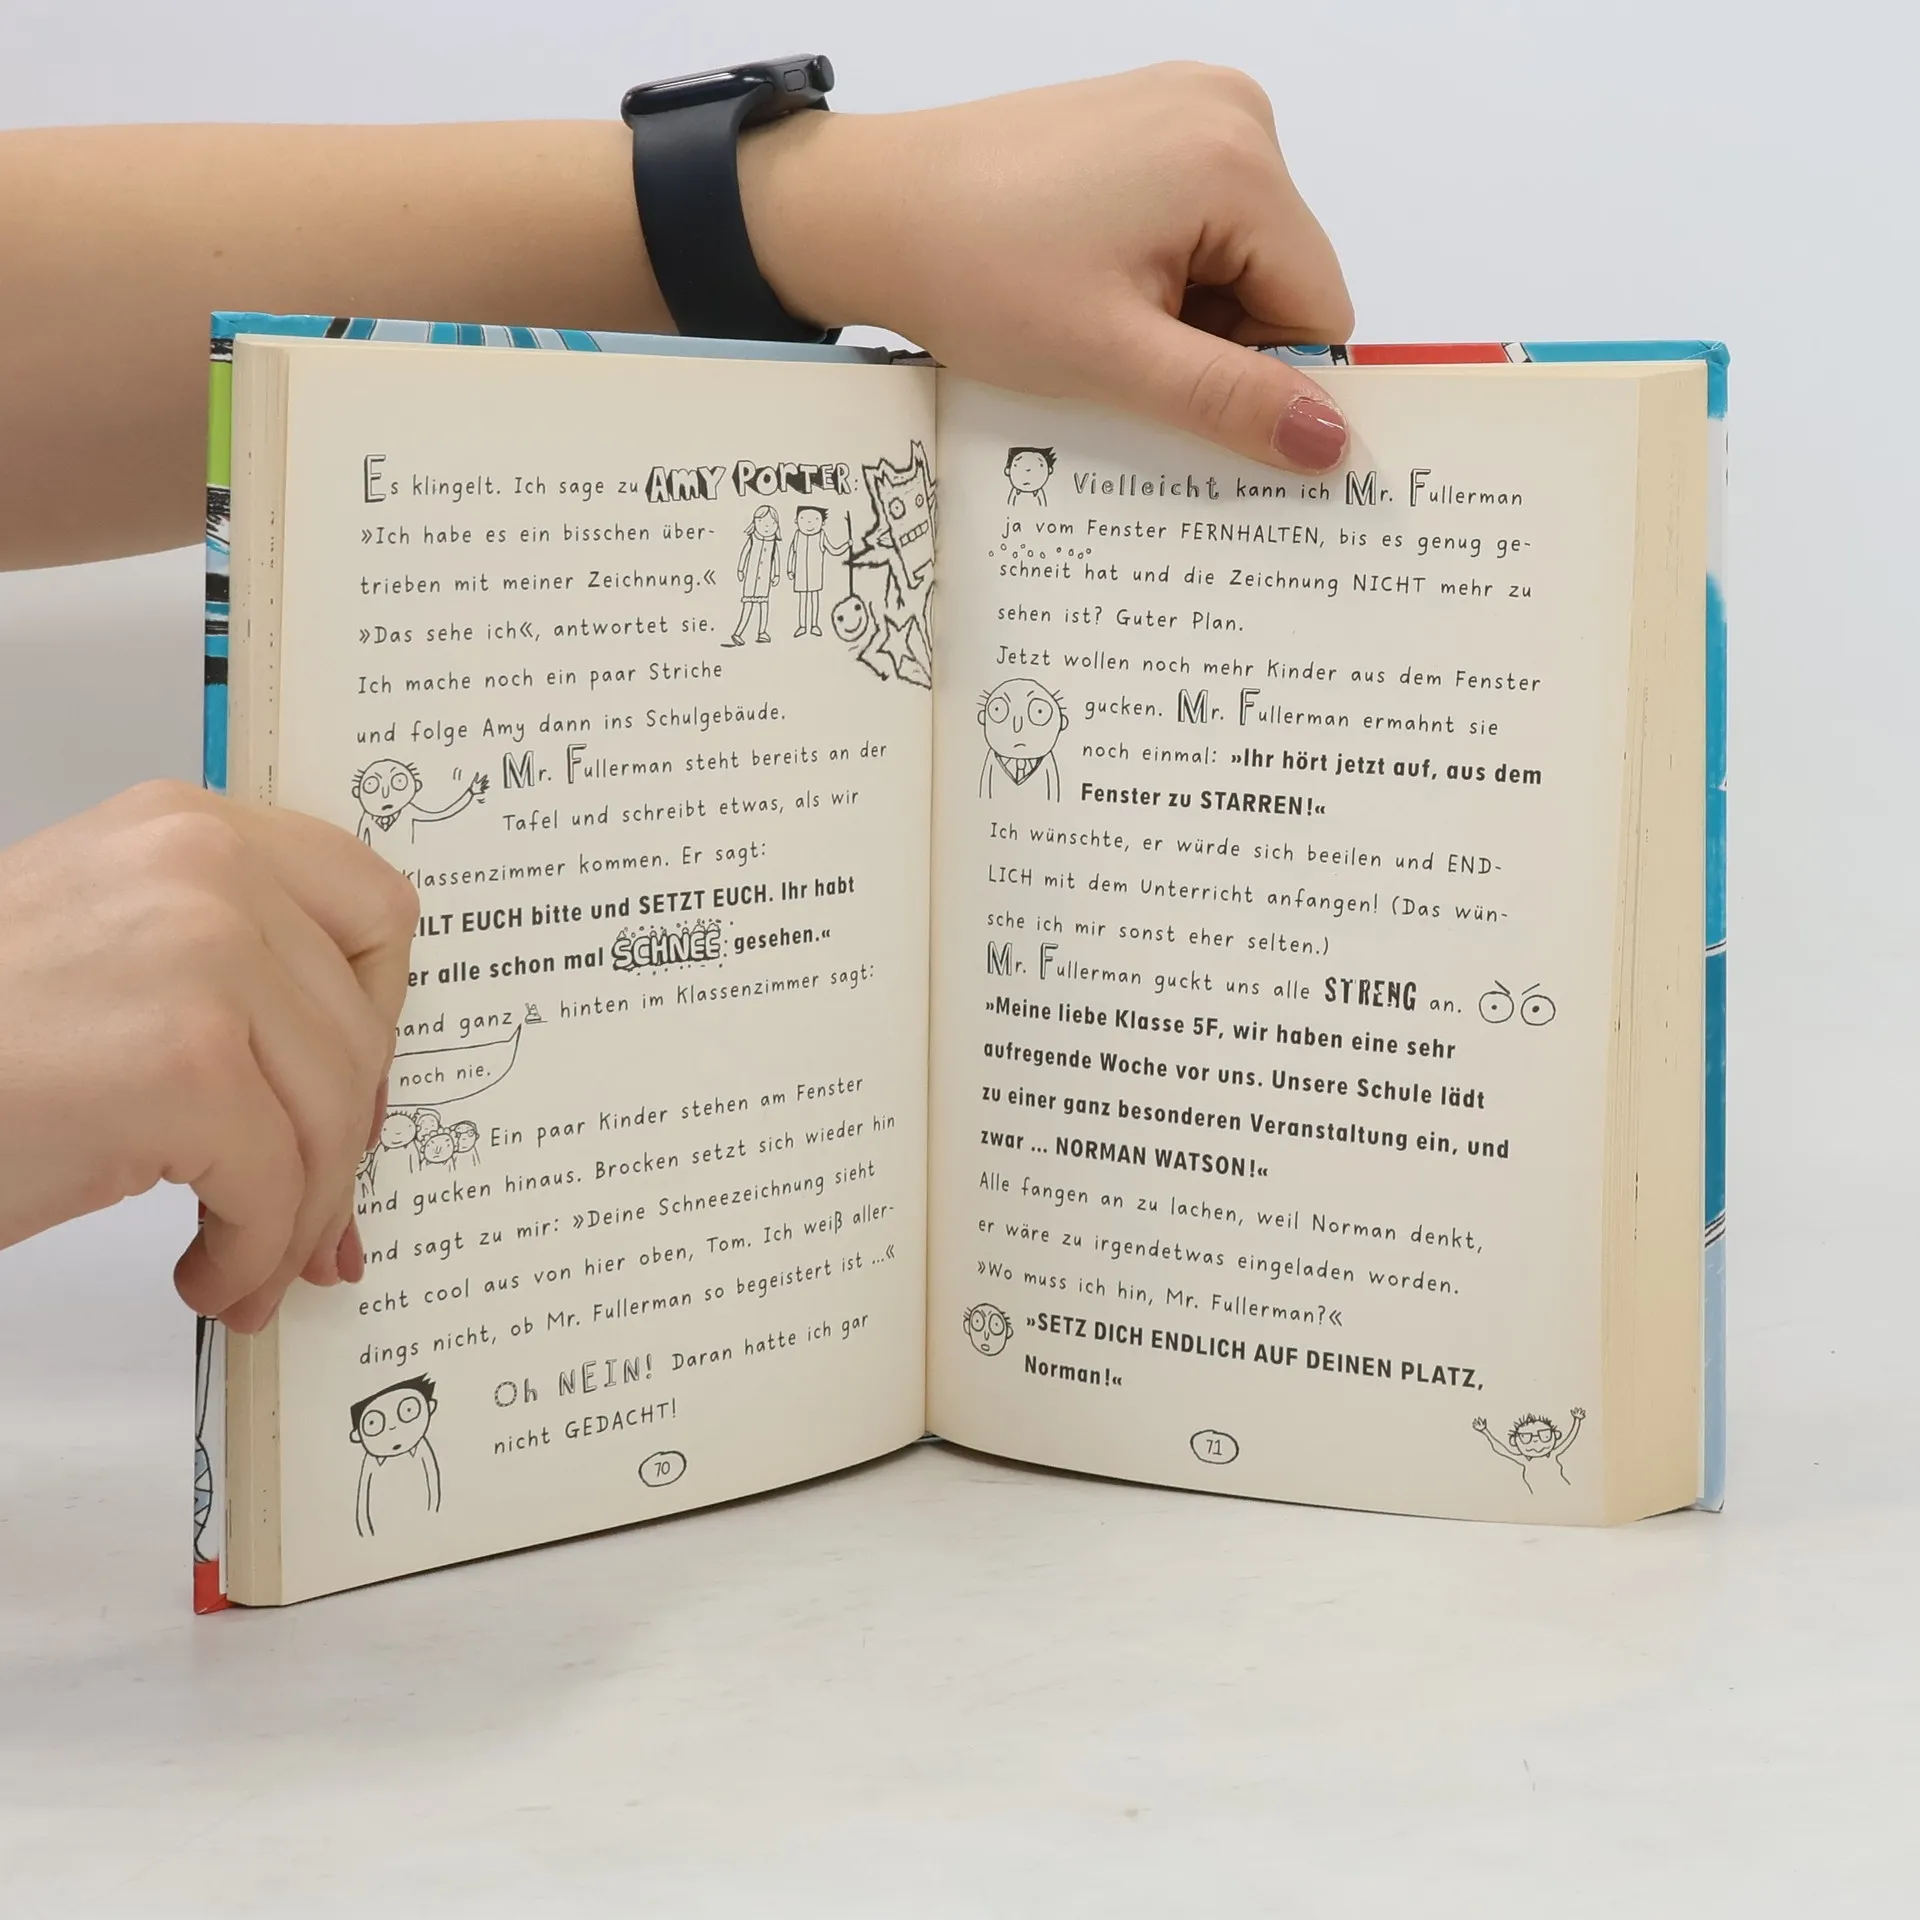 Es klingelt. Ich sage zu AMY PORTER:
»Ich habe es ein bisschen über-
trieben mit meiner Zeichnung.«
»Das sehe ich«, antwortet sie.
Ich mache noch ein paar Striche
und folge Amy dann ins Schulgebäude.
Mr. Fullerman steht bereits an der
Tafel und schreibt etwas, als wir
Klassenzimmer kommen. Er sagt:
EUCH bitte und SETZT EUCH. Ihr habt
alle schon mal SCHNEE gesehen.«
ganz hinten im Klassenzimmer sagt:
noch nie.
Ein paar Kinder stehen am Fenster
und gucken hinaus. Brocken setzt sich wieder hin
und sagt zu mir: »Deine Schneezeichnung sieht
echt cool aus von hier oben, Tom. Ich weiß aller-
dings nicht, ob Mr. Fullerman so begeistert ist ...«
Oh NEIN! Daran hatte ich gar
nicht GEDACHT!
70
Vielleicht kann ich Mr. Fullerman
ja vom Fenster FERNHALTEN, bis es genug ge-
schneit hat und die Zeichnung NICHT mehr zu
sehen ist? Guter Plan.
Jetzt wollen noch mehr Kinder aus dem Fenster
gucken. Mr. Fullerman ermahnt sie
noch einmal: »Ihr hört jetzt auf, aus dem
Fenster zu STARREN!«
Ich wünschte, er würde sich beeilen und END-
LICH mit dem Unterricht anfangen! (Das wün-
sche ich mir sonst eher selten.)
Mr. Fullerman guckt uns alle STRENG an.
»Meine liebe Klasse 5F, wir haben eine sehr
aufregende Woche vor uns. Unsere Schule lädt
zu einer ganz besonderen Veranstaltung ein, und
zwar ... NORMAN WATSON!«
Alle fangen an zu lachen, weil Norman denkt,
er wäre zu irgendetwas eingeladen worden.
»Wo muss ich hin, Mr. Fullerman?«
»SETZ DICH ENDLICH AUF DEINEN PLATZ,
Norman!«
71